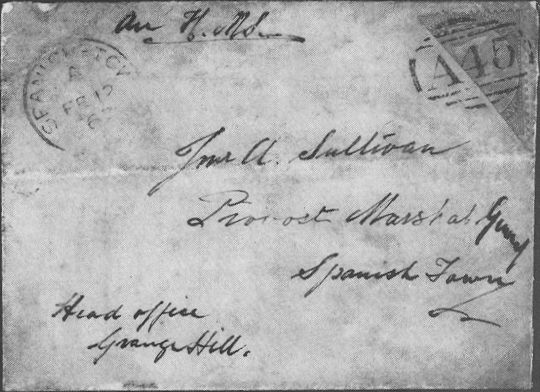 On H.M.S.
SPANISH TOWN
A
FE 12
A45
Jnº A. Sullivan
Provost Marshal Genl
Spanish Town
Head office
Grange Hill.